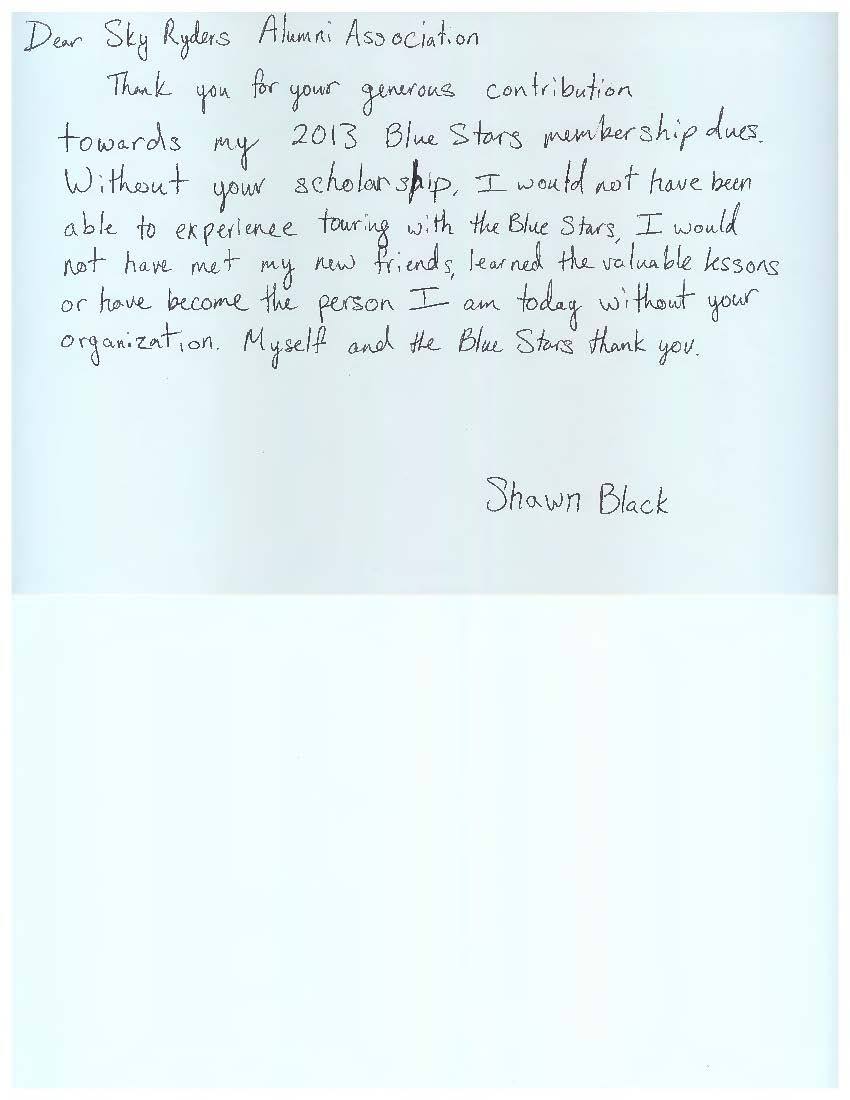 Dear Sky Ryders Alumni Association
Thank you for your generous contribution
towards my 2013 Blue Stars membership dues.
Without your scholarship, I would not have been
able to experience touring with the Blue Stars, I would
not have met my new friends, learned the valuable lessons
or have become the person I am today without your
organization. Myself and the Blue Stars thank you.
Shawn Black